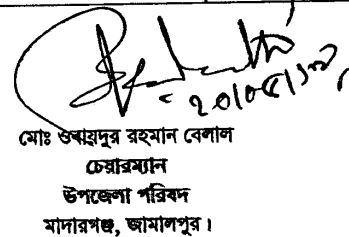 ২০/০৫/১৯
মোঃ ওবায়দুর রহমান বেলাল
চেয়ারম্যান
উপজেলা পরিষদ
মাদারগঞ্জ, জামালপুর।